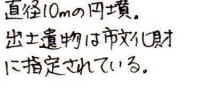 直径10mの円墳。
出土遺物は市文化財
に指定されている。